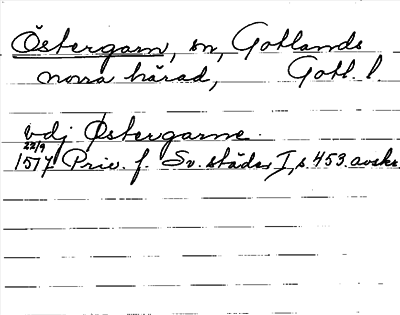 Östergarn, sn, Gotlands
norra härad, Gotl. l.
vdj Østergarne.
22/9
1517 Priv. f. Sv. städer I, s. 453. avskr.